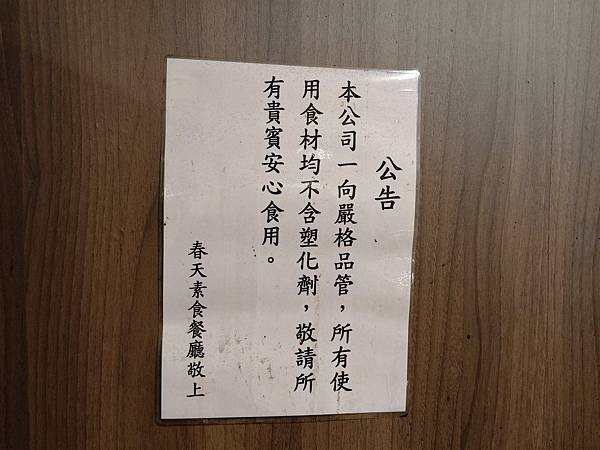 公告
本公司一向嚴格品管，所有使
用食材均不含塑化劑，敬請所
有貴賓安心食用。
春天素食餐廳敬上